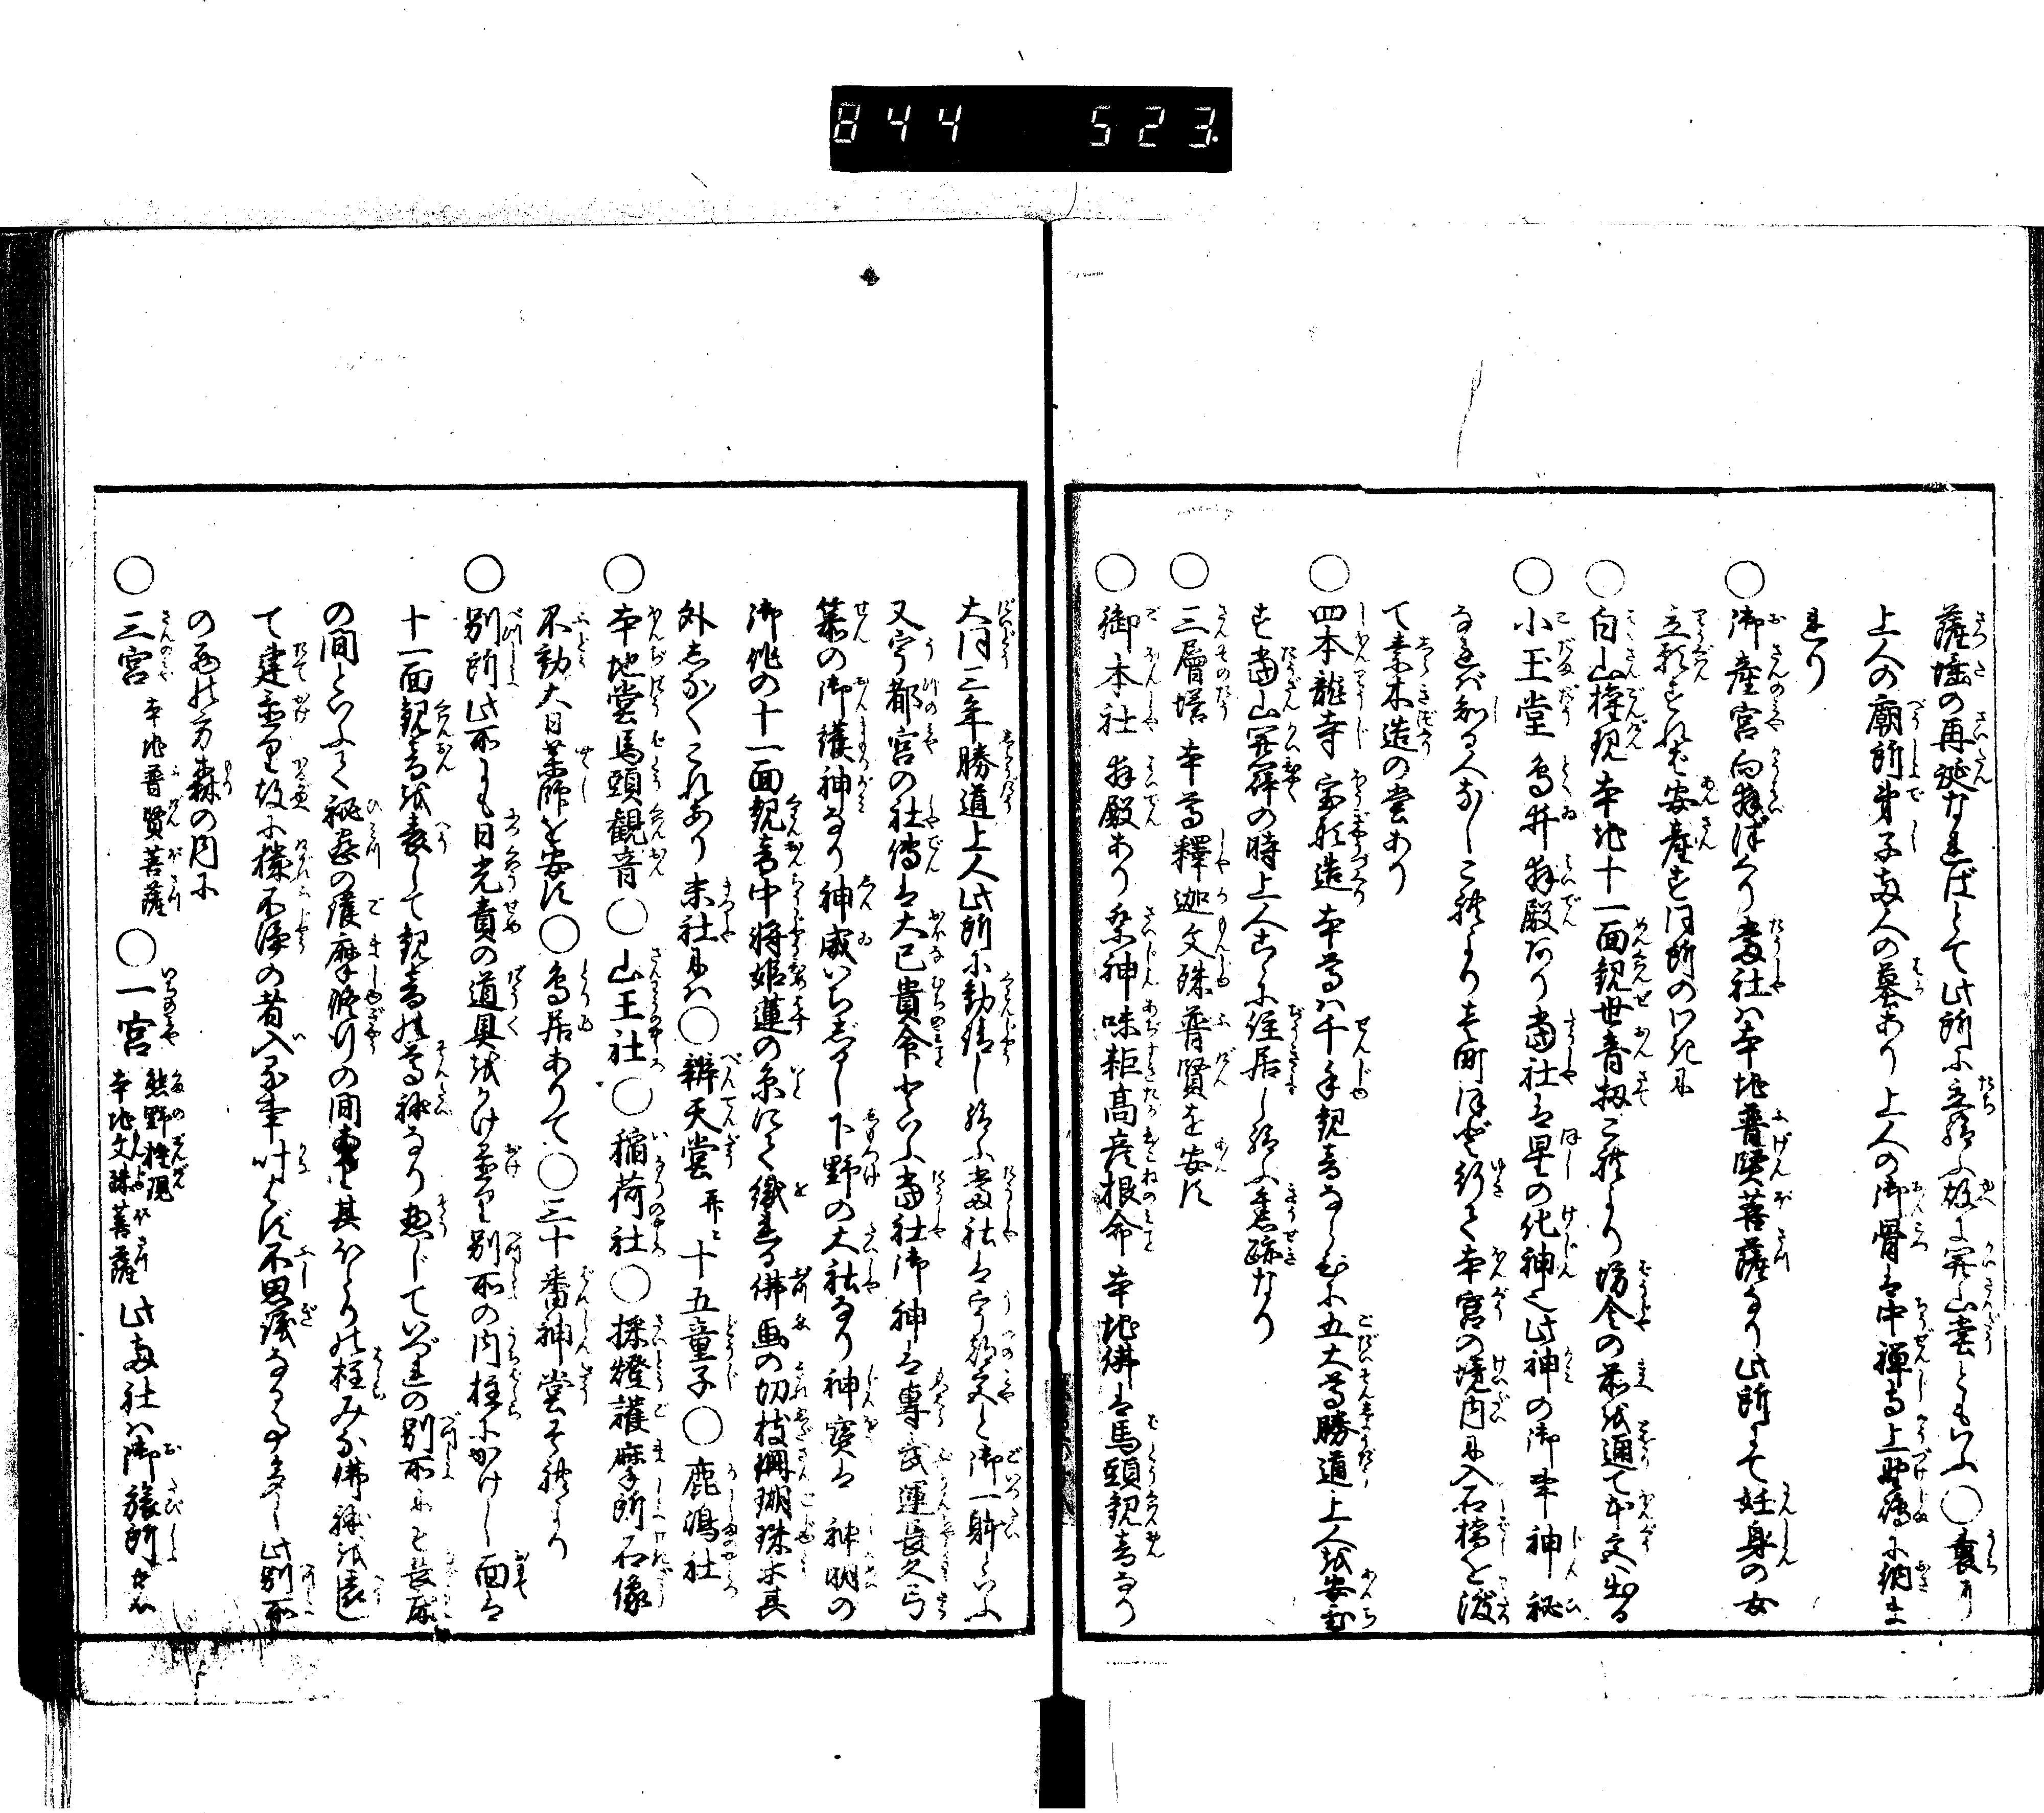 844 523
薩埵の再誕なればとて此所に立給ふ故に開山堂ともいふ○裏に
上人の廟所弟子両人の墓あり上人の御骨は中禅寺上野嶋に納ま
れり
○御産宮 向拝づくり 当社ハ本地普賢菩薩なり此所にて妊身の女
立願すれば安産す同所のつれに
○白山権現 本地十一面観世音扨これより坊舎の前を通て本文へ出る
○小玉堂 鳥井拝殿あり当社は星の化神也此神の御事神秘
なれば知る人なしこれより壱町ほど行て本宮の境内に入石橋を渡
て素木造の堂あり
○四本龍寺 宝形造 本尊ハ千手観音ならびに五大尊勝道上人を安置
す当山開闢の時上人こゝに住居し給ふ旧跡なり
○三層塔 本尊釋迦文殊普賢を安ず
○御本社 拝殿あり祭神味耜高彦根命 本地佛は馬頭観音なり
大同三年勝道上人此所に勧請し給ふ当社は宇都宮と御一躰といふ
又宇都宮の社傳は大己貴命といふ当社御神は専武運長久弓
箭の御護神なり神威いちじるし下野の大社なり神寶は神明の
御作の十一面観音中将姫蓮の糸にて織れる佛画の切枝珊瑚珠等其
外あながくこれあり末社にハ○辨天堂 并に十五童子○鹿嶋社
○本地堂馬頭観音○山王社○稲荷社○採燈護摩所石像
不動大日薬師を安ず○鳥居ありて○三十番神堂それより
○別所 此所にも日光責の道具をかけ置り別所の内柱にかけし面は
十一面観音を表して観音の尊躰なり惣じていづれの別所にも長床
の間といふて秘密の護摩修行の間専其ほとりの柱みな佛躰を表し
て建置り故に穢不浄の者入る事叶はず不思議なる事多し此別所
の西の方森の内に
○三宮 本地普賢菩薩 ○一宮 熊野権現 本地文殊菩薩 此両社ハ御旅所なり